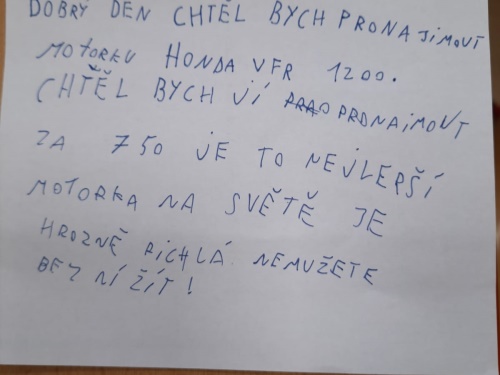 DOBRÝ DEN CHTĚL BYCH PRONAJÍMOUT
MOTORKU HONDA VFR 1200.
CHTĚL BYCH JÍ PRONAJMOUT
ZA 750 JE TO NEJLEPŠÍ
MOTORKA NA SVĚTĚ JE
HROZNĚ RICHLÁ NEMUŽETE
BEZ NÍ ŽÍT!